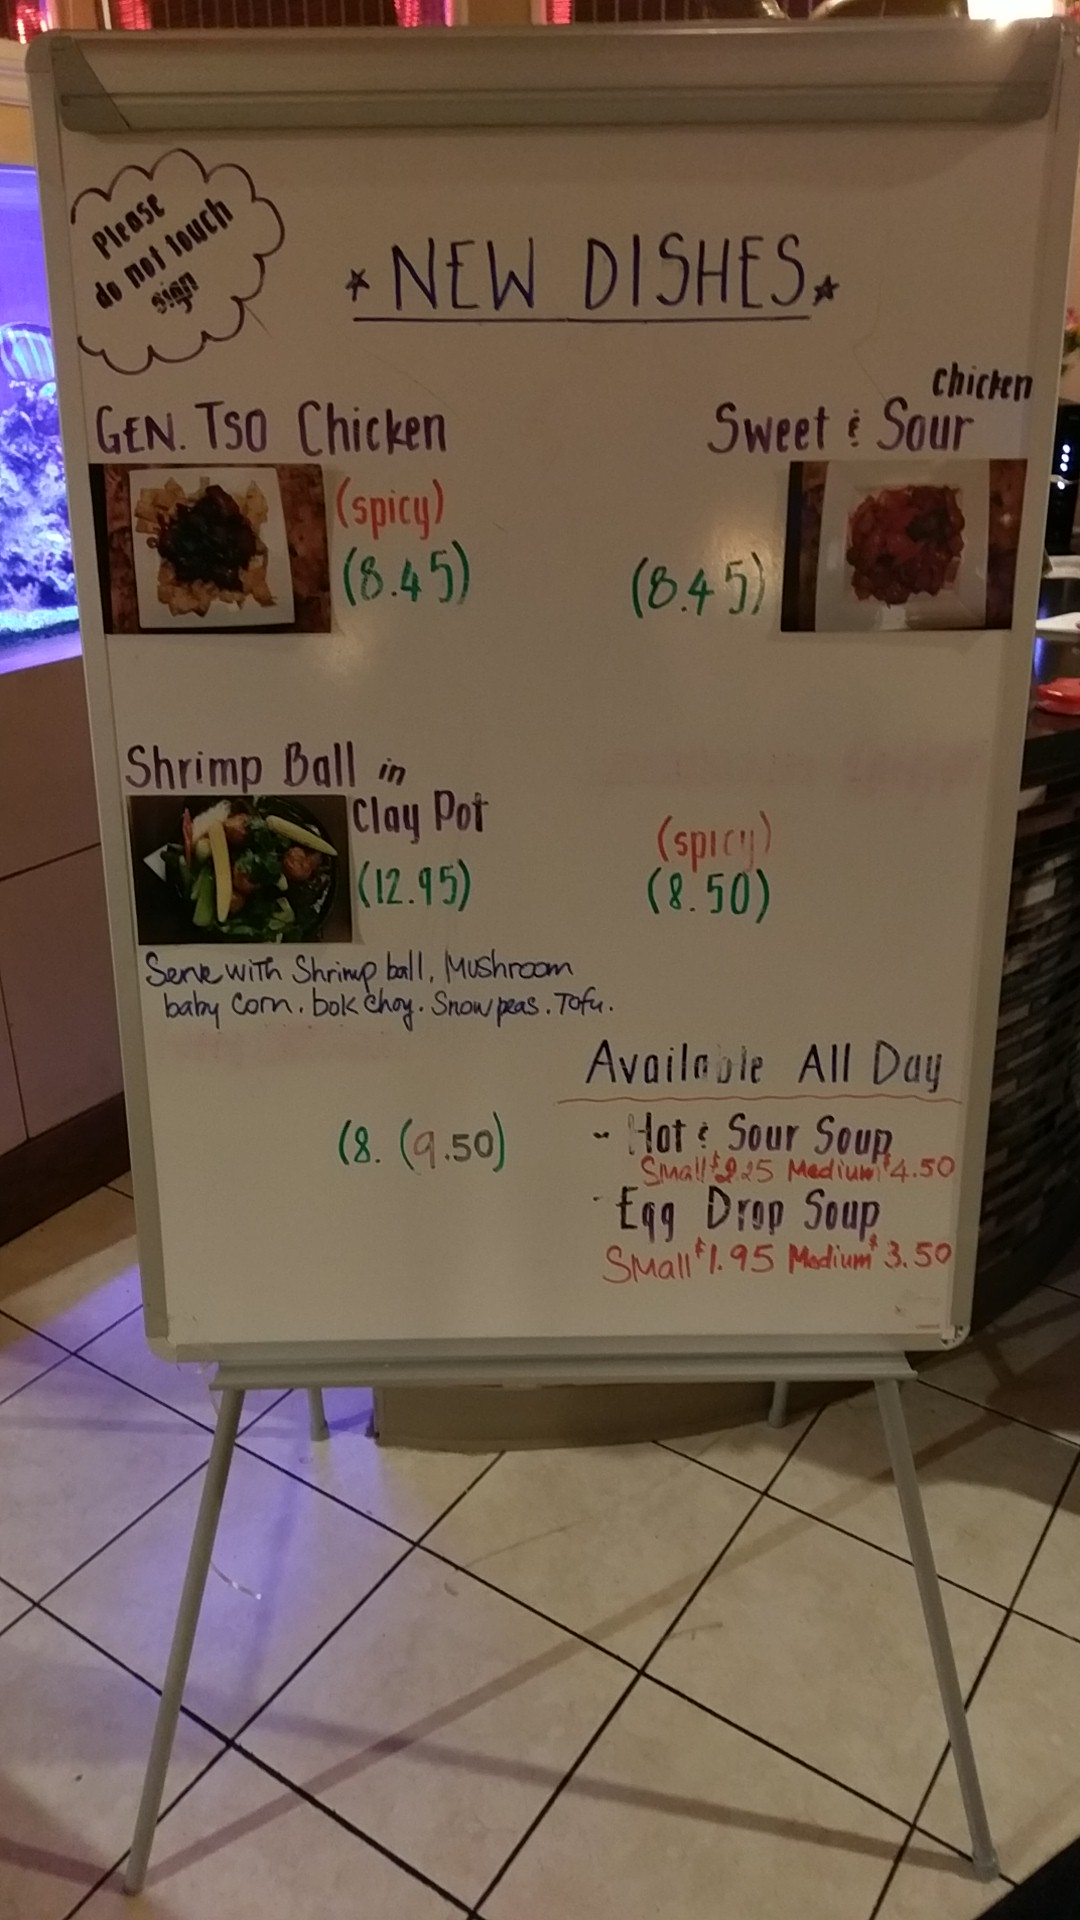 Please
do not touch
sign
* NEW DISHES *
GEN. TSO Chicken
(spicy)
(8.45)
chicken
Sweet & Sour
(8.45)
Shrimp Ball in
Clay Pot
(12.95)
Serve with Shrimp ball, Mushroom
baby corn. bok choy. Snow peas. Tofu.
(spicy)
(8.50)
(8. (9.50)
Available All Day
- Hot & Sour Soup
Small $2.25 Medium $4.50
- Egg Drop Soup
Small $1.95 Medium $3.50